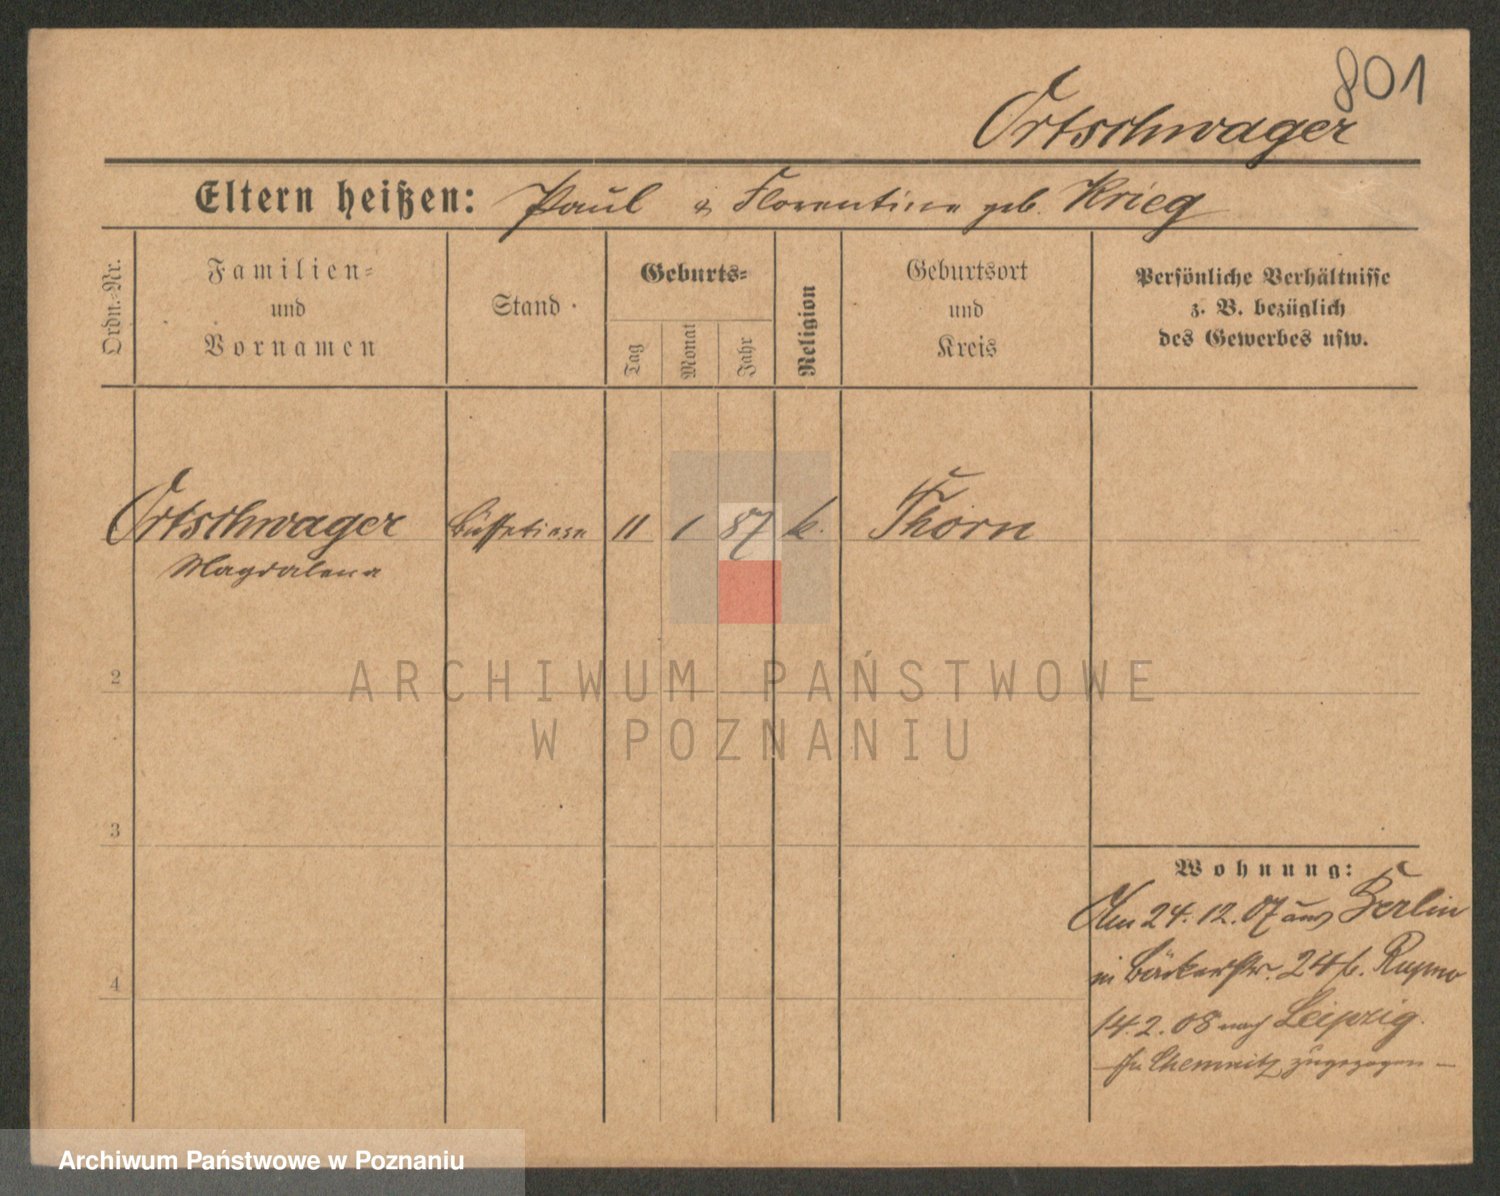 801
Ortschwager
Eltern heißen: Paul & Florentine geb. Krieg
Ordn.=Nr.
Familien=
und
Vornamen
Stand
Geburts=
Tag
Monat
Jahr
Religion
Geburtsort
und
Kreis
Persönliche Verhältnisse
z. B. bezüglich
des Gewerbes usw.
Ortschwager Büffetiere 11 1 87 k. Thorn
Magdalena
2
ARCHIWUM PAŃSTWOWE
W POZNANIU
3
4
Wohnung:
Am 24. 12. 07 aus Berlin
in Bäckerstr. 24 b.
14. 2. 08 nach Leipzig.
Chemnitz zugezogen –
Archiwum Państwowe w Poznaniu